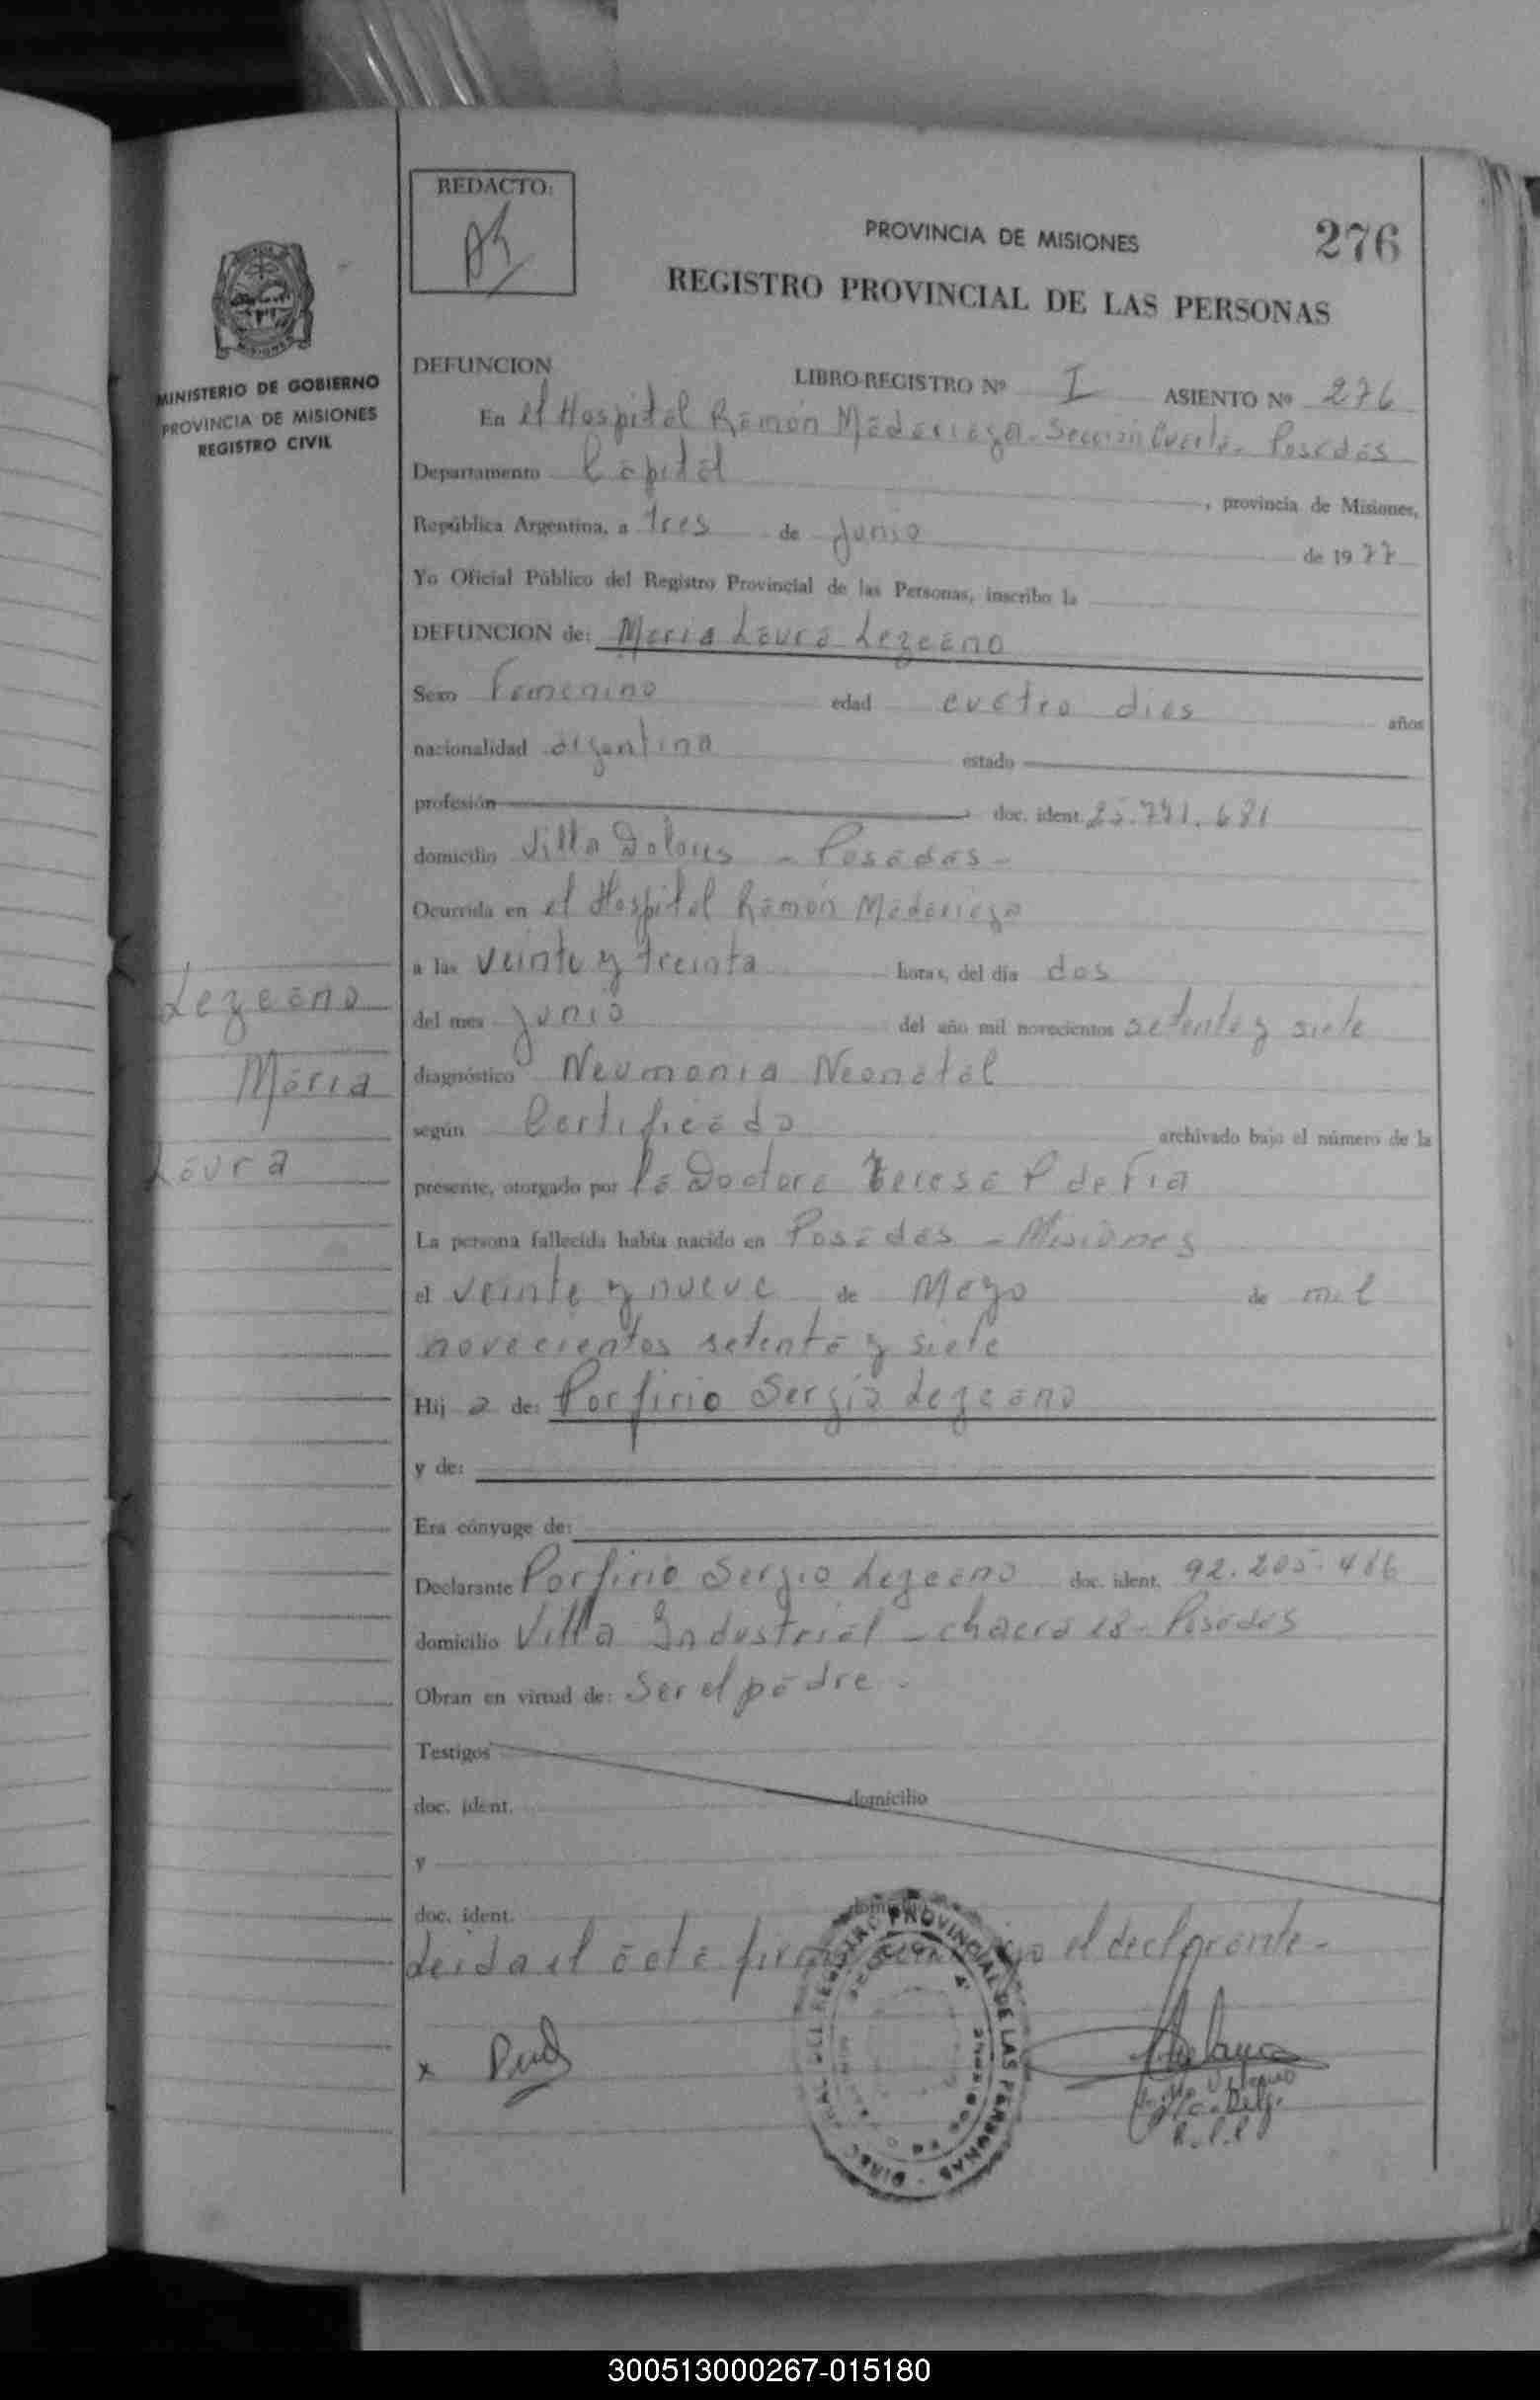 REDACTO:
PROVINCIA DE MISIONES
276
REGISTRO PROVINCIAL DE LAS PERSONAS
MINISTERIO DE GOBIERNO
PROVINCIA DE MISIONES
REGISTRO CIVIL
DEFUNCION LIBRO-REGISTRO Nº I ASIENTO Nº 276
En el Hospital Ramón Madariaga - Sección Cuarta - Posadas
Departamento Capital, provincia de Misiones,
República Argentina, a tres de junio de 1977
Yo Oficial Público del Registro Provincial de las Personas, inscribo la
DEFUNCION de: Maria Laura Lezcano
Sexo Femenino edad cuatro dias años
nacionalidad argentina estado
profesión doc. ident. 25.791.681
domicilio Villa Dolores - Posadas -
Ocurrida en el Hospital Ramón Madariaga
a las veinte y treinta horas, del día dos
del mes junio del año mil novecientos setenta y siete
diagnóstico Neumonia Neonatal
según Certificado archivado bajo el número de la
presente, otorgado por la Doctora Teresa P de Fia
La persona fallecida había nacido en Posadas - Misiones
el veinte y nueve de Mayo de mil
novecientos setenta y siete
Hij a de: Porfirio Sergio Lezcano
y de:
Era cónyuge de:
Declarante Porfirio Sergio Lezcano doc. ident. 92.205.486
domicilio Villa Industrial - chacra 18 - Posadas
Obran en virtud de: Ser el padre.
Testigos
doc. ident. domicilio
y
doc. ident. domicilio
Leida el acta firma el declarante -
x
Lezcano
Maria
Laura
REGISTRO PROVINCIAL DE LAS PERSONAS
300513000267-015180